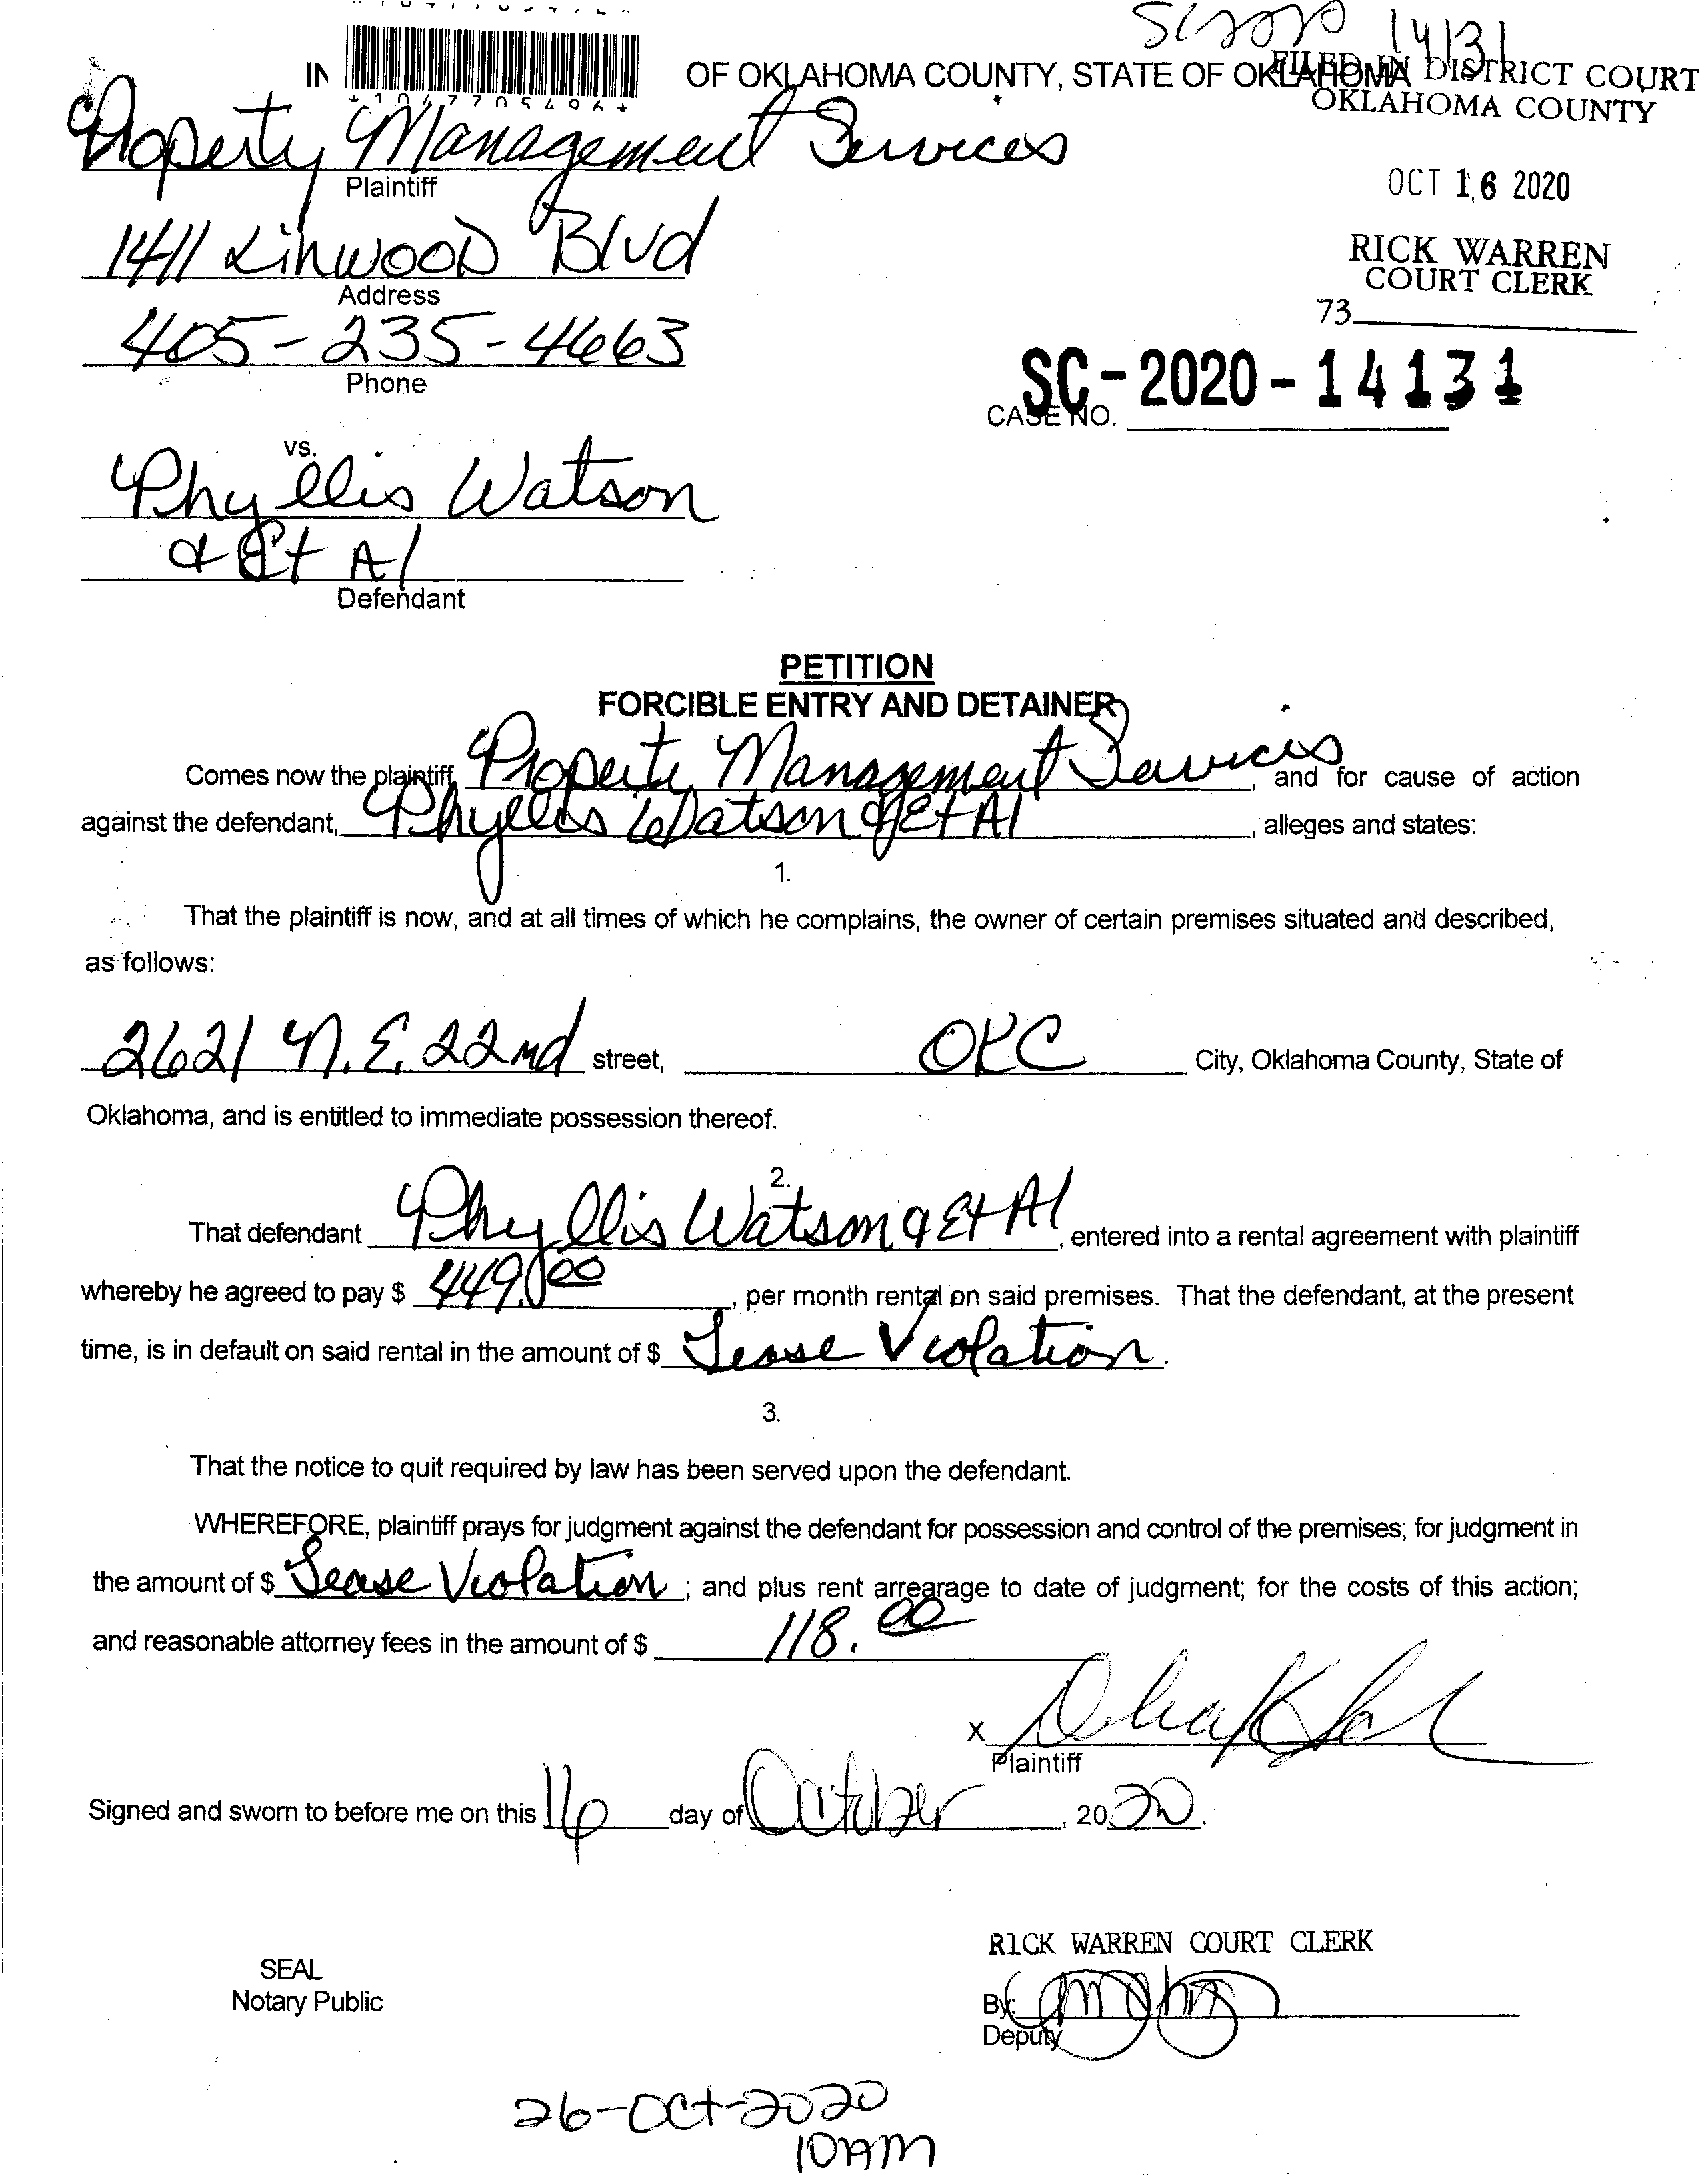 SC2020 14131
IN OF OKLAHOMA COUNTY, STATE OF OKLAHOMA
FILED IN DISTRICT COURT
OKLAHOMA COUNTY
Property Management Services
Plaintiff
OCT 16 2020
1411 Linwood Blvd
Address
RICK WARREN
COURT CLERK
73
405-235-4663
Phone
SC-2020-14131
CASE NO.
vs.
Phyllis Watson
& Et Al
Defendant
PETITION
FORCIBLE ENTRY AND DETAINER
Comes now the plaintiff, Property Management Services, and for cause of action
against the defendant, Phyllis Watson & Et Al, alleges and states:
1.
That the plaintiff is now, and at all times of which he complains, the owner of certain premises situated and described,
as follows:
2621 N.E. 22nd street, OKC City, Oklahoma County, State of
Oklahoma, and is entitled to immediate possession thereof.
2.
That defendant Phyllis Watson & Et Al, entered into a rental agreement with plaintiff
whereby he agreed to pay $ 449.00, per month rental on said premises. That the defendant, at the present
time, is in default on said rental in the amount of $ Lease Violation.
3.
That the notice to quit required by law has been served upon the defendant.
WHEREFORE, plaintiff prays for judgment against the defendant for possession and control of the premises; for judgment in
the amount of $ Lease Violation; and plus rent arrearage to date of judgment; for the costs of this action;
and reasonable attorney fees in the amount of $ 118.00
X
Plaintiff
Signed and sworn to before me on this 16 day of October, 2020.
RICK WARREN COURT CLERK
SEAL
Notary Public
By:
Deputy
26-Oct-2020
10AM